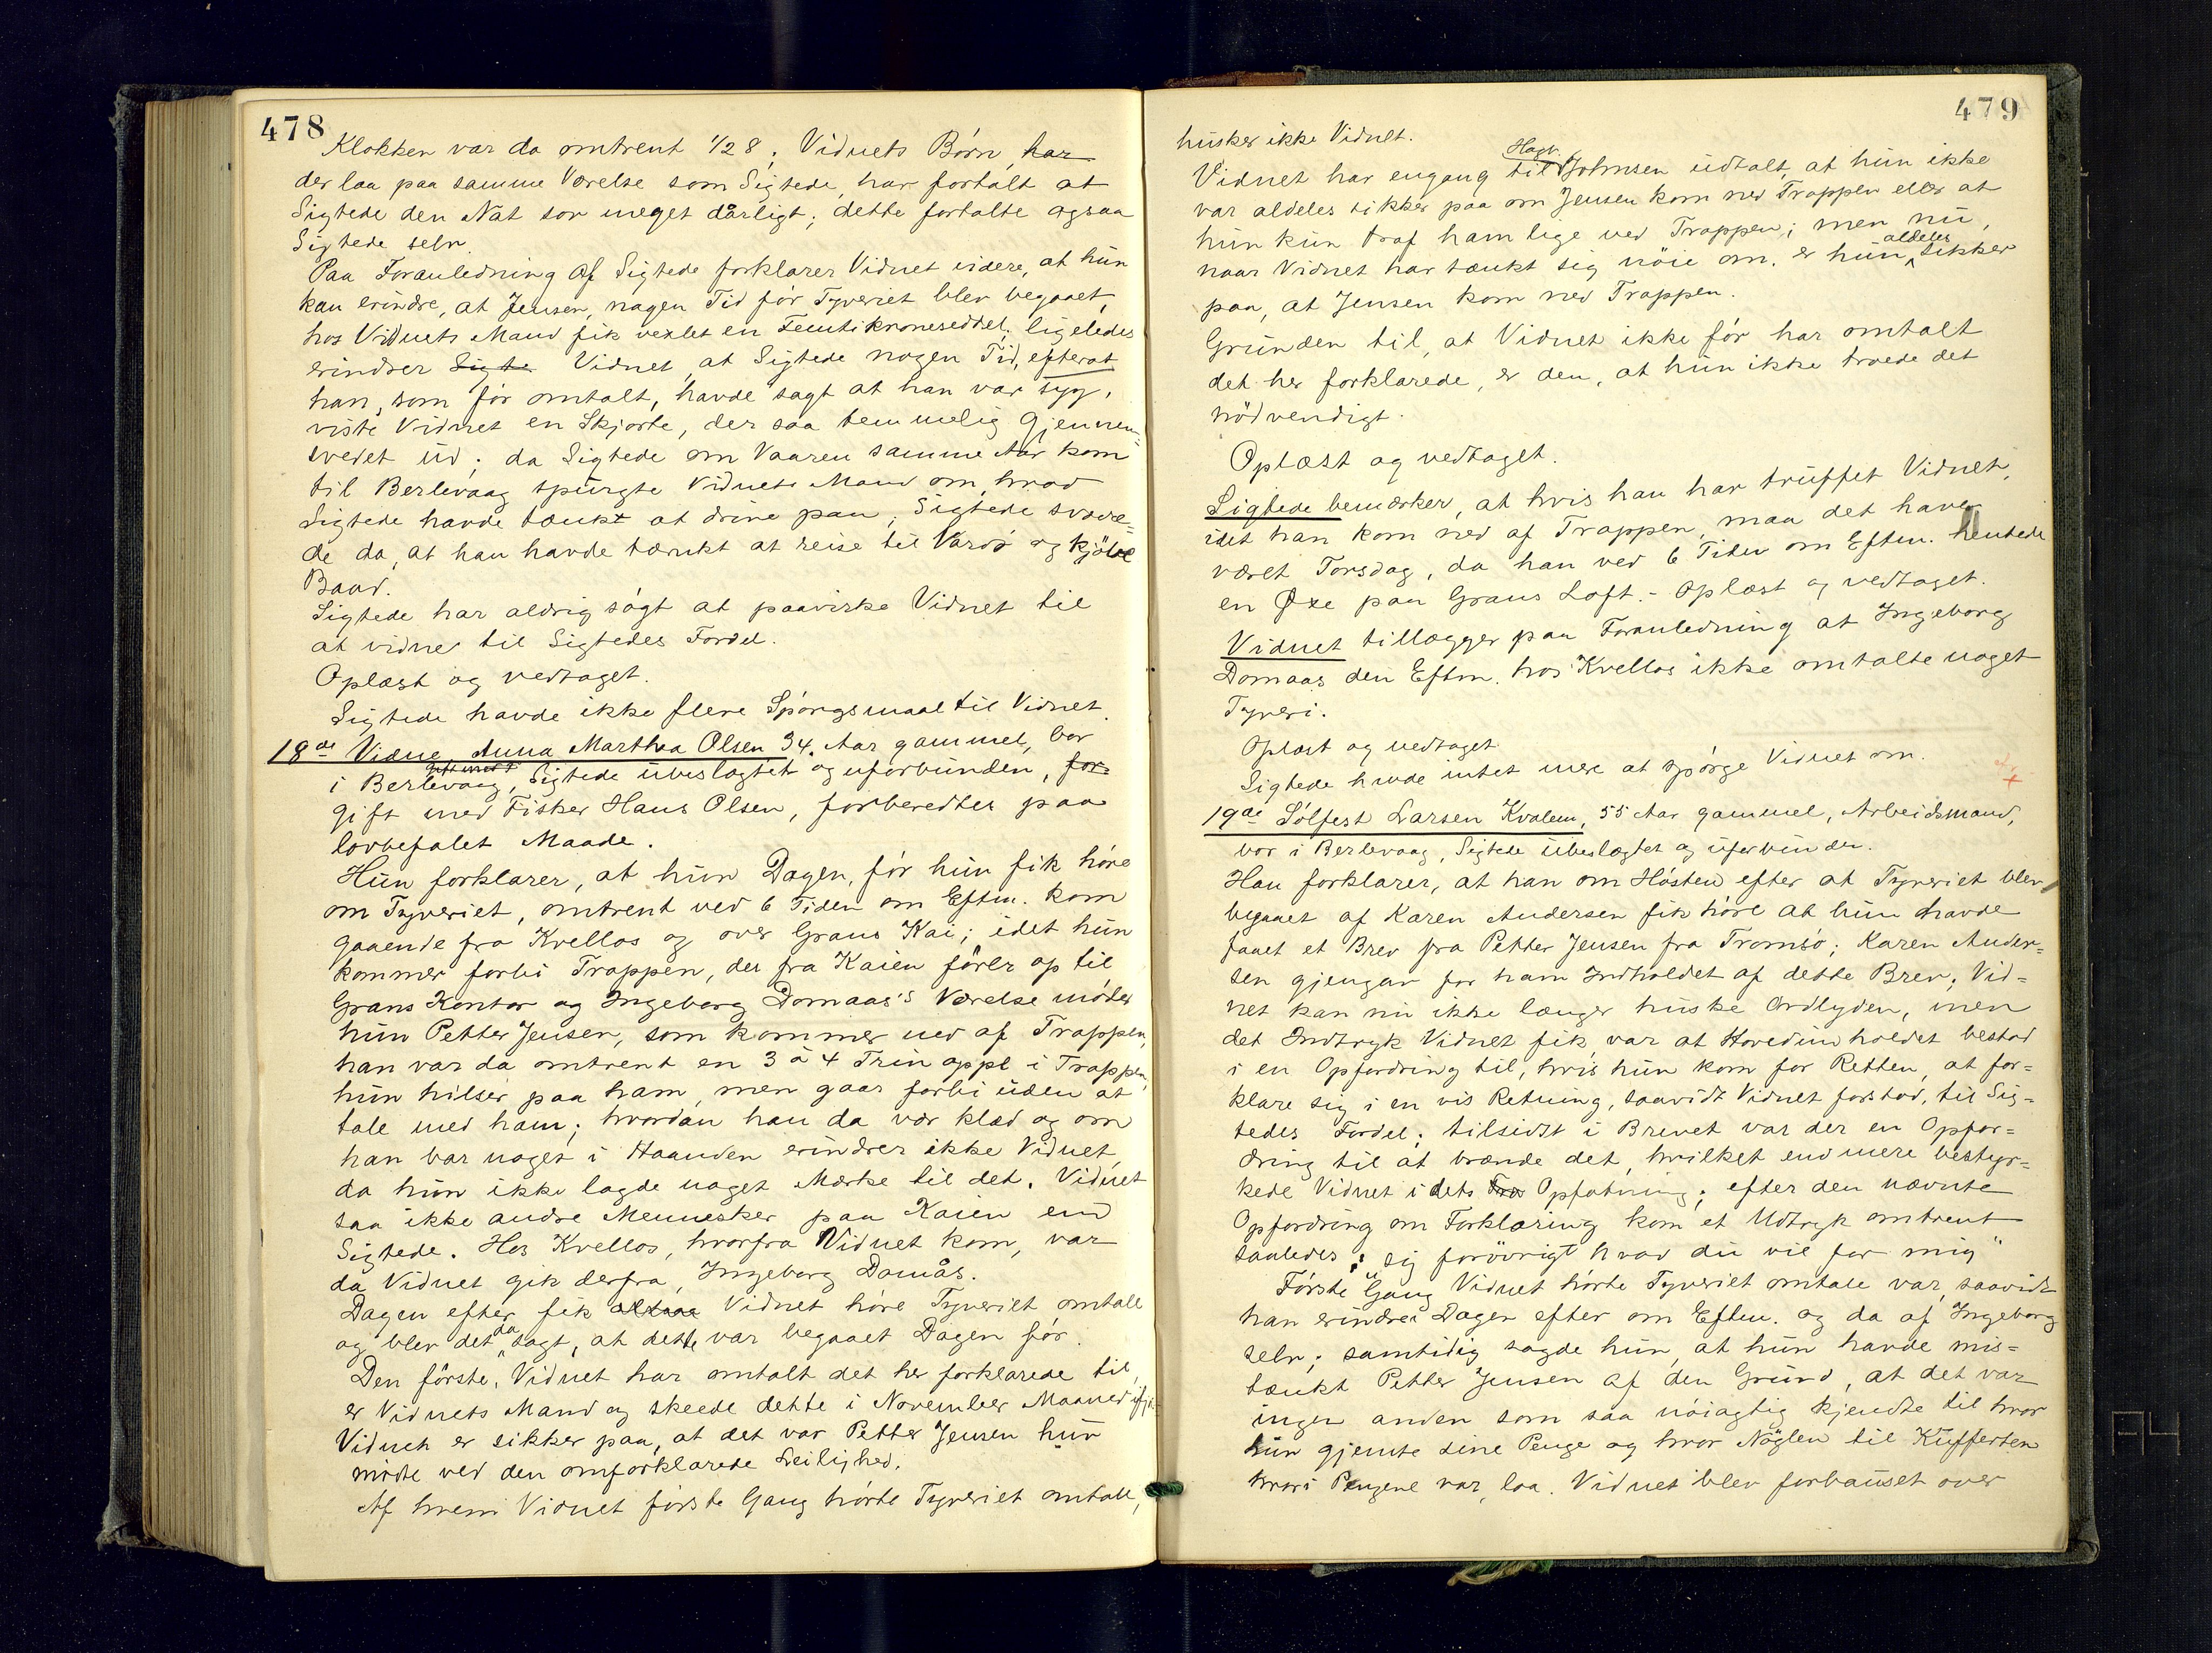 478
Klokken var da omtrent 1/2 8; Vidnets Børn har
der laa paa samme Værelse som Sigtede, har fortalt at
Sigtede den Nat sov meget dårligt; dette fortalte ogsaa
Sigtede selv.
Paa Foranledning af Sigtede forklarer Vidnet videre, at hun
kan erindre, at Jensen, nogen Tid før Tyveriet blev begaaet,
hos Vidnets Mand fik vexlet en Femtikroneseddel; ligeledes
erindrer Sigte Vidnet, at Sigtede nogen Tid, efterat
han, som før omtalt, havde sagt at han var syg,
viste Vidnet en Skjorte, der saa temmelig gjennem=
svedet ud; da Sigtede om Vaaren samme Aar kom
til Berlevaag spurgte Vidnets Mand om, hvad
Sigtede havde tænkt at drive paa; Sigtede svare=
de da, at han havde tænkt at reise til Vardø og kjøbe
Baad.
Sigtede har aldrig søgt at paavirke Vidnet til
at vidne til Sigtedes Fordel.
Oplæst og vedtaget.
Sigtede havde ikke flere Spørgsmaal til Vidnet.
18de Vidne Anna Marthea Olsen 34. Aar gammel, bor
gift med
i Berlevaag, Sigtede ubeslægtet og uforbunden, for
gift med Fisker Hans Olsen, forberedtes paa
lovbefalet Maade.
Hun forklarer, at hun Dagen, før hun fik høre
om Tyveriet, omtrent ved 6 Tiden om Eftm. kom
gaaende fra Kvellos og over Grans Kai; idet hun
kommer forbi Trappen, der fra Kaien fører op til
Grans Kontor og Ingeborg Domaas's Værelse møder
hun Petter Jensen, som kommer ned af Trappen,
han var da omtrent en 3 à 4 Trin oppe i Trappen,
hun hilser paa ham, men gaar forbi uden at
tale med ham; hvordan han da var klæd og om
han bar noget i Haanden erindrer ikke Vidnet,
da hun ikke lagde noget Mærke til det. Vidnet
saa ikke andre Mennesker paa Kaien end
Sigtede. Hos Kvellos, hvorfra Vidnet kom, var
da Vidnet gik derfra, Ingeborg Domås.
Dagen efter fik Vidnet høre Tyveriet omtale
da
og blev det sagt, at dette var begaaet Dagen før.
Den første, Vidnet har omtalt det her forklarede til,
er Vidnets Mand og skeede dette i November Maaned ifjor.
Vidnet er sikker paa, at det var Petter Jensen hun
mødte ved den omforklarede Leilighed.
Af hvem Vidnet første Gang hørte Tyveriet omtale,
479
husker ikke Vidnet.
Vidnet har engang til Johnsen udtalt, at hun ikke
var aldeles sikker paa om Jensen kom ned Trappen eller at
hun kun traf ham lige ved Trappen; men nu,
aldeles
naar Vidnet har tænkt sig nöie om, er hun sikker
paa, at Jensen kom ned Trappen.
Grunden til, at Vidnet ikke før har omtalt
det her forklarede, er den, at hun ikke troede det
nödvendigt.
Oplæst og vedtaget.
Sigtede bemærker, at hvis han har truffet Vidnet,
idet han kom ned af Trappen, maa det have
været Torsdag, da han ved 6 Tiden om Eftm. hentede
en Øxe paa Grans Loft. - Oplæst og vedtaget.
Vidnet tillægger paa Foranledning at Ingeborg
Domaas den Eftm. hos Kvellos ikke omtalte noget
Tyveri.
Oplæst og vedtaget
Sigtede havde intet mere at spørge Vidnet om.
19de Sølfest Larsen Kvalem, 55 Aar gammel, Arbeidsmand,
bor i Berlevaag, Sigtede ubeslægtet og uforbunden.
Han forklarer, at han om Høsten efter at Tyveriet blev
begaaet af Karen Andersen fik høre at hun havde
faaet et Brev fra Petter Jensen fra Tromsø; Karen Ander=
sen gjengav for ham Indholdet af dette Brev; Vid=
net kan nu ikke længer huske Ordlyden, men
det Indtryk Vidnet fik, var at Hovedindholdet bestod
i en Opfordring til, hvis hun kom for Retten, at for=
klare sig i en vis Retning, saavidt Vidnet forstod, til Sig=
tedes Fordel; tilsidst i Brevet var der en Opfor=
dring til at brænde det, hvilket end mere bestyr=
kede Vidnet i dets Opfatning; efter den nævnte
Opfordring om Forklaring kom et Udtryk omtrent
saaledes: "sig forövrigt hvad du vil for mig"
Første Gang Vidnet hørte Tyveriet omtale var, saavidt
han erindrer Dagen efter om Eftm. og da af Ingeborg
selv; samtidig sagde hun, at hun havde mis=
tænkt Petter Jensen af den Grund, at det var
ingen anden som saa nöiagtig kjendte til hvor
hun gjemte sine Penge og hvor Nöglen til Kufferten
hvori Pengene var, laa. Vidnet blev forbauset over